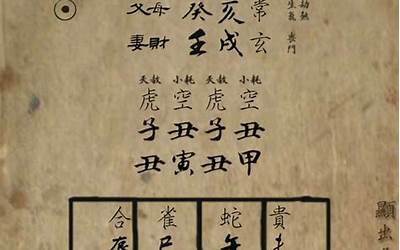 父母癸亥常
妻財壬戌玄
生氣 喪門
天赦 小耗 天赦 小耗
虎空虎空
子丑子丑
丑寅丑甲
合雀蛇貴
顯